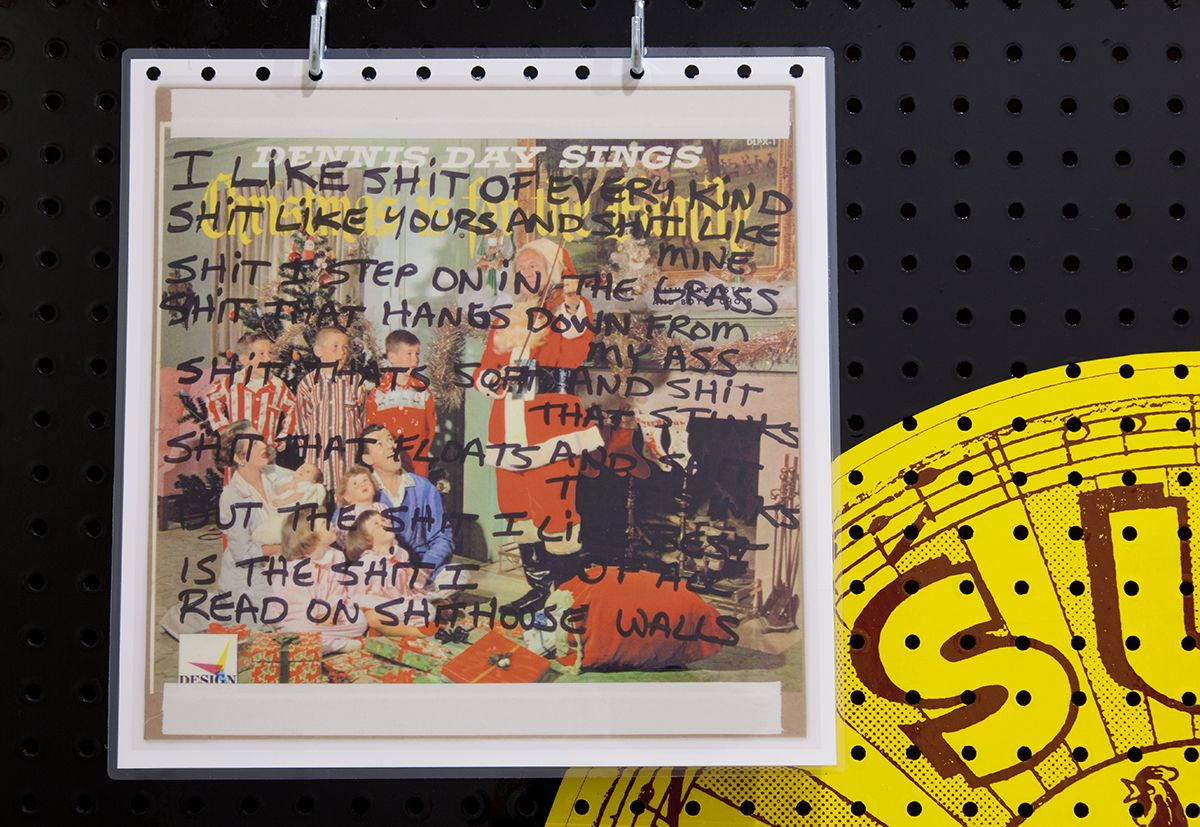 DENNIS DAY SINGS
DLPX-1
Christmas is for the Family
I LIKE SHiT OF EVERY KIND
SHiT LIKE YOURS AND SHiT LIKE
MINE
SHiT I STEP ON iN THE GRASS
SHiT THAT HANGS DOWN FROM
MY ASS
SHiT THATS SOFT AND SHiT
THAT STiNKS
SHiT THAT FLOATS AND SHiT
BUT THE SHiT I LiKE BEST
OF ALL
IS THE SHiT I
READ ON SHiTHOUSE WALLS
AND BOYS CHOIR
DESIGN
SU